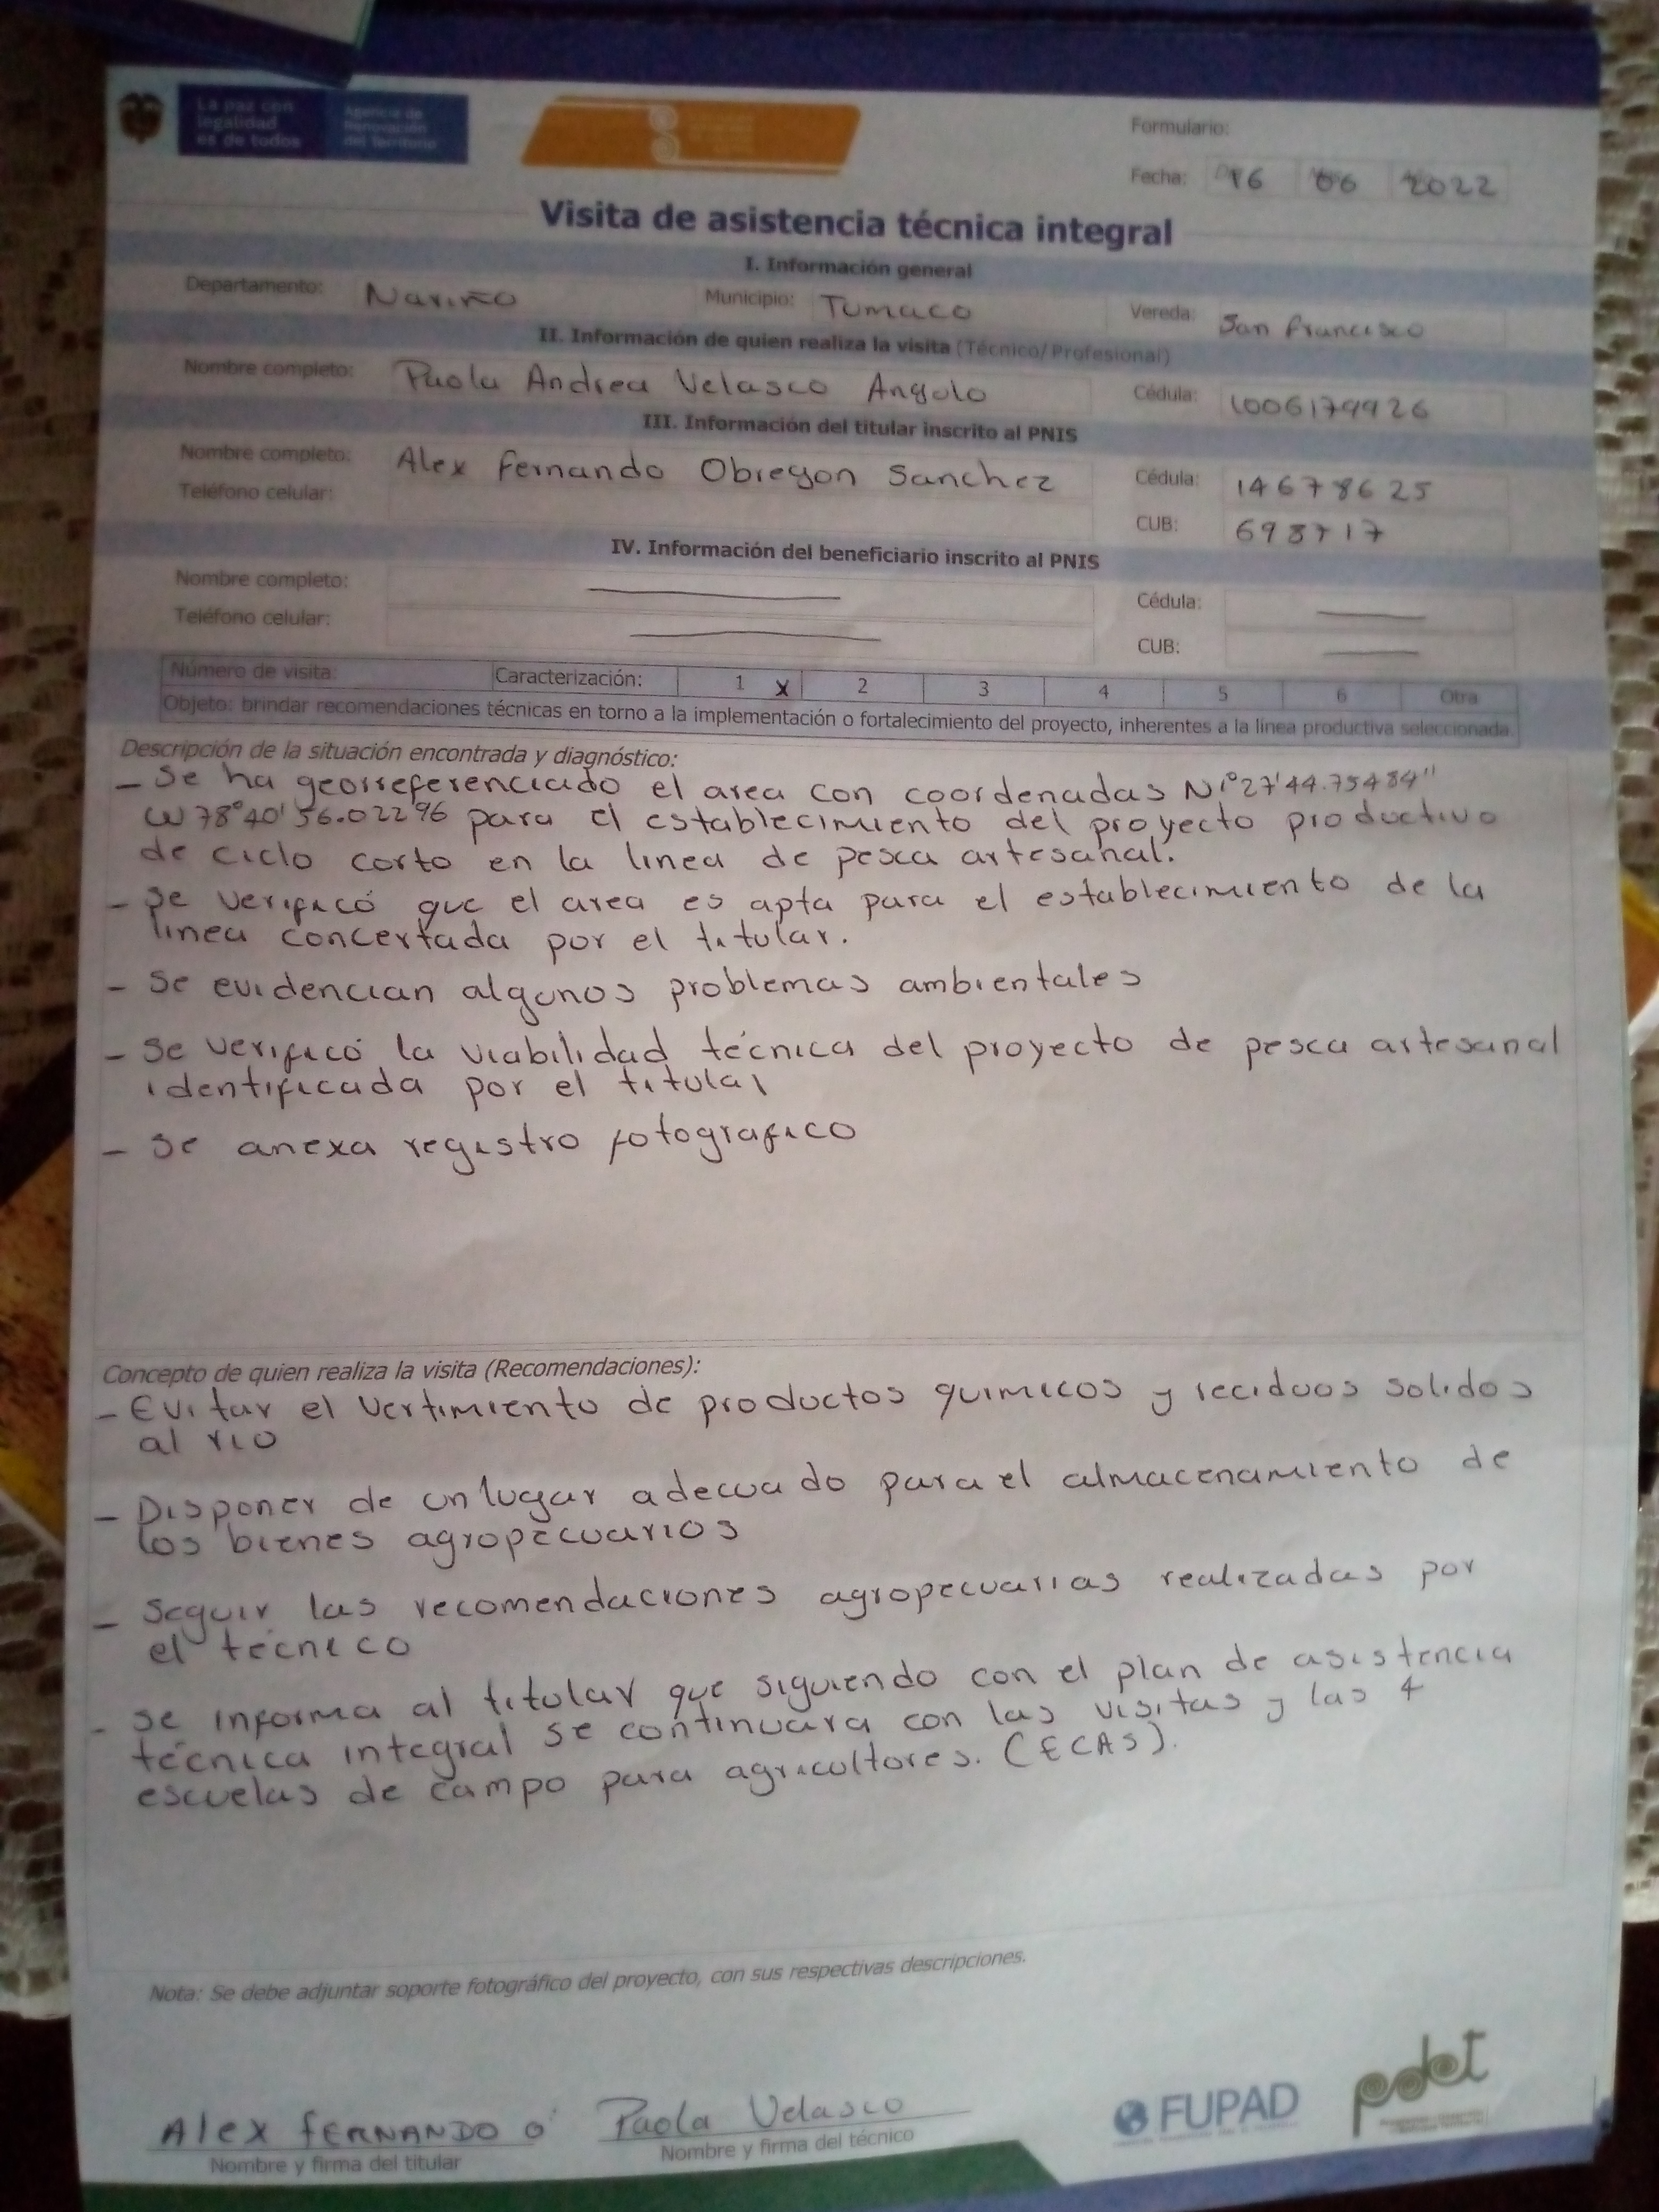 La paz con
legalidad
es de todos
Agencia de
Renovación
del Territorio
Formulario:
Fecha: 16 06 2022
Visita de asistencia técnica integral
I. Información general
Departamento: Nariño Municipio: Tumaco Vereda: San Francisco
II. Información de quien realiza la visita (Técnico/Profesional)
Nombre completo: Paola Andrea Velasco Angulo Cédula: 1006179926
III. Información del titular inscrito al PNIS
Nombre completo: Alex Fernando Obregon Sanchez Cédula: 14678625
Teléfono celular: CUB: 698717
IV. Información del beneficiario inscrito al PNIS
Nombre completo: Cédula:
Teléfono celular: CUB:
Número de visita: Caracterización: 1 X 2 3 4 5 6 Otra
Objeto: brindar recomendaciones técnicas en torno a la implementación o fortalecimiento del proyecto, inherentes a la línea productiva seleccionada.
Descripción de la situación encontrada y diagnóstico:
- Se ha georreferenciado el area con coordenadas N1°27'44.75484"
W78°40'56.02296 para el establecimiento del proyecto productivo
de ciclo corto en la linea de pesca artesanal.
- Se verificó que el area es apta para el establecimiento de la
linea concertada por el titular.
- Se evidencian algunos problemas ambientales
- Se verificó la viabilidad técnica del proyecto de pesca artesanal
identificada por el titular
- Se anexa registro fotografico
Concepto de quien realiza la visita (Recomendaciones):
- Evitar el vertimiento de productos quimicos y reciduos solidos
al rio
- Disponer de un lugar adecuado para el almacenamiento de
los bienes agropecuarios
- Seguir las recomendaciones agropecuarias realizadas por
el técnico
- se informa al titular que siguiendo con el plan de asistencia
técnica integral se continuara con las visitas y las 4
escuelas de campo para agricultores. (ECAS).
Nota: Se debe adjuntar soporte fotográfico del proyecto, con sus respectivas descripciones.
Alex FERNANDO O
Nombre y firma del titular
Paola Velasco
Nombre y firma del técnico
FUPAD
pdet